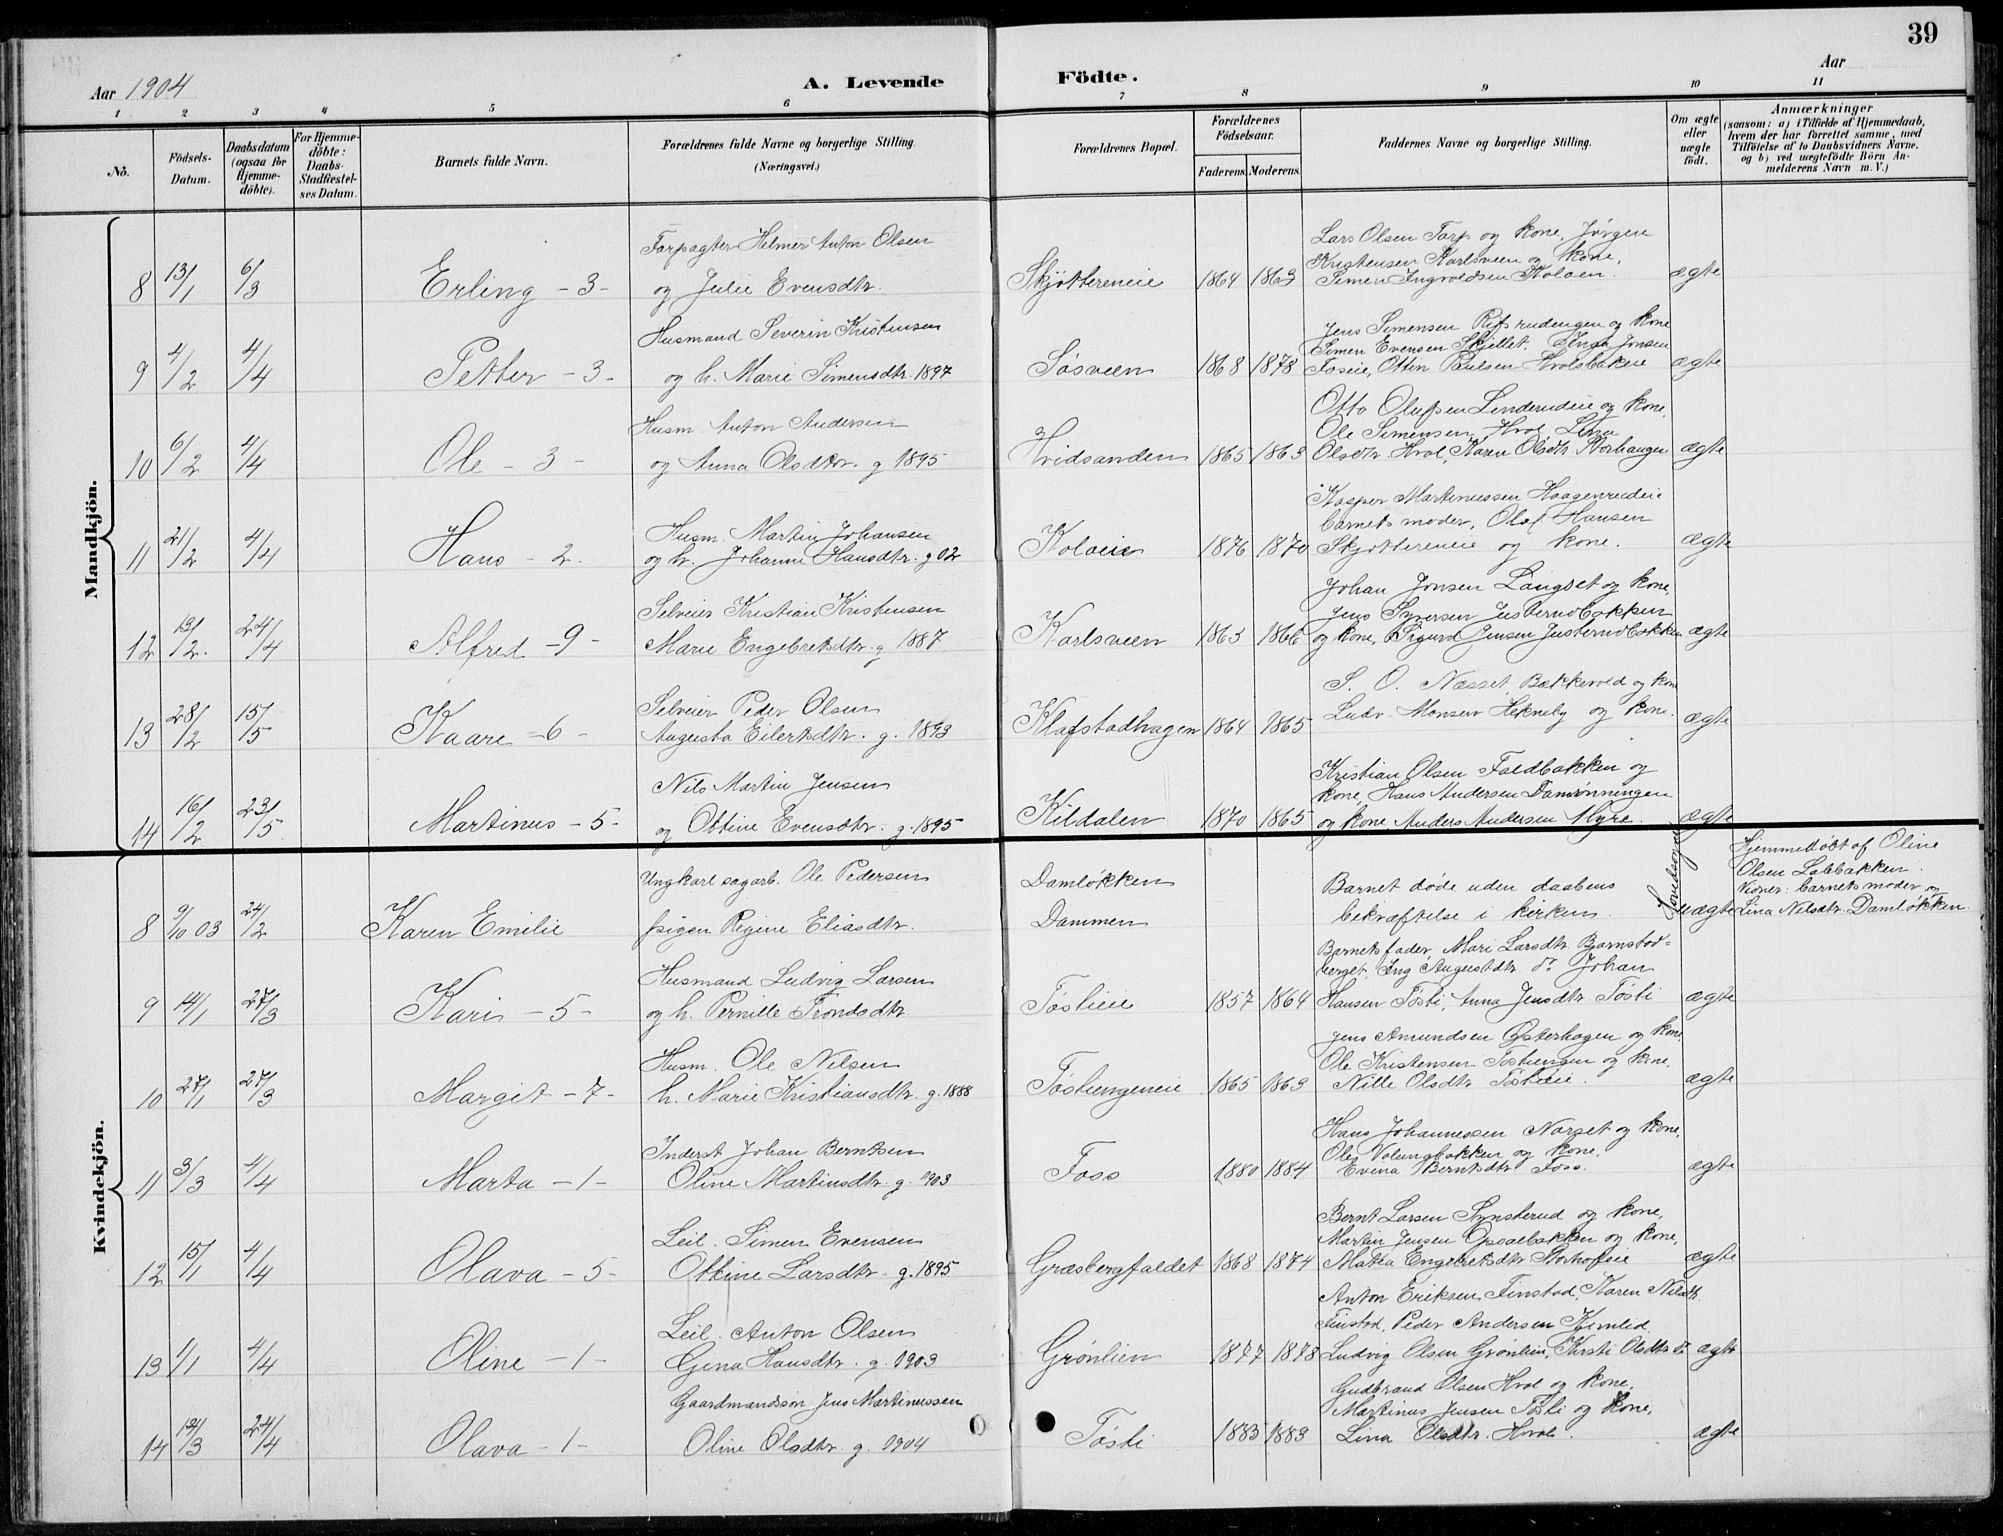 39
Aar 1904
A. Levende Födte.
Aar
1 2 3 4 5 6 7 8 9 10 11
No.
Födsels-Datum.
Daabsdatum (ogsaa for Hjemme-döbte).
For Hjemme-döbte: Daabs-Stadfæstel-ses Datum.
Barnets fulde Navn.
Forældrenes fulde Navne og borgerlige Stilling. (Næringsvei.)
Forældrenes Bopæl.
Forældrenes Födselsaar.
Faderens. Moderens.
Faddernes Navne og borgerlige Stilling.
Om ægte eller uægte födt.
Anmærkninger (saasom: a) i Tilfælde af Hjemmedaab, hvem der har forrettet samme, med Tilföielse af to Daabsvidners Navne, og b) ved uægtefödte Börn An-melderens Navn m.V.)
Mandkjön.
Forpagter Helmer Anton Olsen
Lars Olsen Tarp og kone, Jørgen
Kristensen Karlsveen og kone,
8 13/1 6/3 Erling - 3 - og Julie Evensdtr. Skjøttereneie 1864 1863 Simen Ingvoldsen Koloen. ægte
Husmand Severin Kristensen
Jens Simensen Rifsrudengen og kone
Simen Evensen Skjellet. Inga Jonsen
9 4/2 4/4 Petter - 3 - og h. Marie Simensdtr. 1897 Søsveen 1868 1878 Foseie, Ottin Paulsen Hvolsbakeie ægte
Husm. Anton Andersen
Otto Olufsen Linderudeie og kone,
Ole Simensen Hvol, Lina
10 6/2 4/4 Ole - 3 - og Anna Olsdtr. g 1895 Hvidsanden 1865 1863 Olsdtr. Hvol, Karen Olsdtr. Storhaugen ægte
Kasper Martinussen Haagenrudeie
Husm. Martin Johansen
barnets moder, Olaf Hansen
11 21/2 4/4 Hans - 2. og h. Johanne Hansdtr. g 02 Koloeie 1876 1870 Skjøttereneie og kone. ægte
Johan Jonsen Langset og kone,
Selveier Kristian Kristensen
Jens Syversen Justernobakken
12 19/2. 24/4 Alfred - 9 - Marie Engebretsdtr. g 1887 Karlsveen 1863 1866 og kone, Sigurd Jensen Justernobakken ægte
Selveier Peder Olsen
S. O. Næsset, Bækkevold og kone
13 28/2 15/5 Kaare - 6 - Augusta Eilertsdtr. g. 1893 Klafstadhagen 1864 1865 Ludv. Monsen Hekneby og kone. ægte
Nils Martin Jensen
Kristian Olsen Faldbakken og
kone, Hans Andersen Damrønningen
14 16/2 23/5 Martinus - 5 - og Ottine Evensdtr. g. 1895 Kildalen 1870 1865 og kone Anders Andersen Myre. ægte
Kvindekjön.
Ungkarl sagarb. Ole Pedersen Damløkken
Hjemmedøbt af Oline
Olsen Labbakken.
Vidner: barnets moder og
Barnet døde uden daabens
8 9/10 03 24/2 Karen Emilie pigen Regine Eliasdtr. Dammen bekræftelse i kirken. uægte Lina Nilsdtr. Damløkken.
Barnets fader, Mari Larsdtr. Bjørnstad-
Husmand Ludvig Larsen
berget, Ing Augustdtr. do Johan
9 14/1 27/3 Kari - 5 - og h. Pernille Trondsdtr. Tøstieie 1857 1864 Hansen Tøsti, Anna Jensdtr. Tøsti ægte
Jens Amundsen Østerhagen og kone,
Husm. Ole Nilsen
Ole Kristensen Tøstiengen og kone,
10 27/1 27/3 Margit - 7 - h. Marie Kristiansdtr. g. 1888 Tøstiengeneie 1865 1863 Nille Olsdtr. Tøstieie. ægte
Hans Johannessen Norset og kone,
Inderst Johan Berntsen
Ole Volungbakken og kone,
11 3/3 4/4 Marta - 1 - Oline Martinsdtr. g. 1903 Foss 1880 1884 Evina Berntsdtr. Foss. ægte
Bernt Larsen Synsterud og kone,
Leil. Simen Evensen
Martin Jensen Opsalbakken og kone,
12 15/1 4/4 Olava - 5 - Ottine Larsdtr. g. 1895 Græsbergfaldet 1868 1874 Matea Engebretsdtr. ægte
Anton Eriksen Finstad, Karen Nilsdtr.
Leil. Anton Olsen
Finstad, Peder Andersen Kjemlid
13 1/1 4/4 Oline - 1 - Gina Hansdtr. g. 1903 Grønlien 1877 1878 Ludvig Olsen Grønlien, Kirsti Olsdtr do ægte
Gudbrand Olsen Hvol og kone,
Gaardmandssøn Jens Martinussen
Martinus Jensen Tøsti og kone,
14 19/3 24/4 Olava - 1 - Oline Olsdtr. g. 1904 Tøsti 1883 1883 Lina Olsdtr. Hvol. ægte